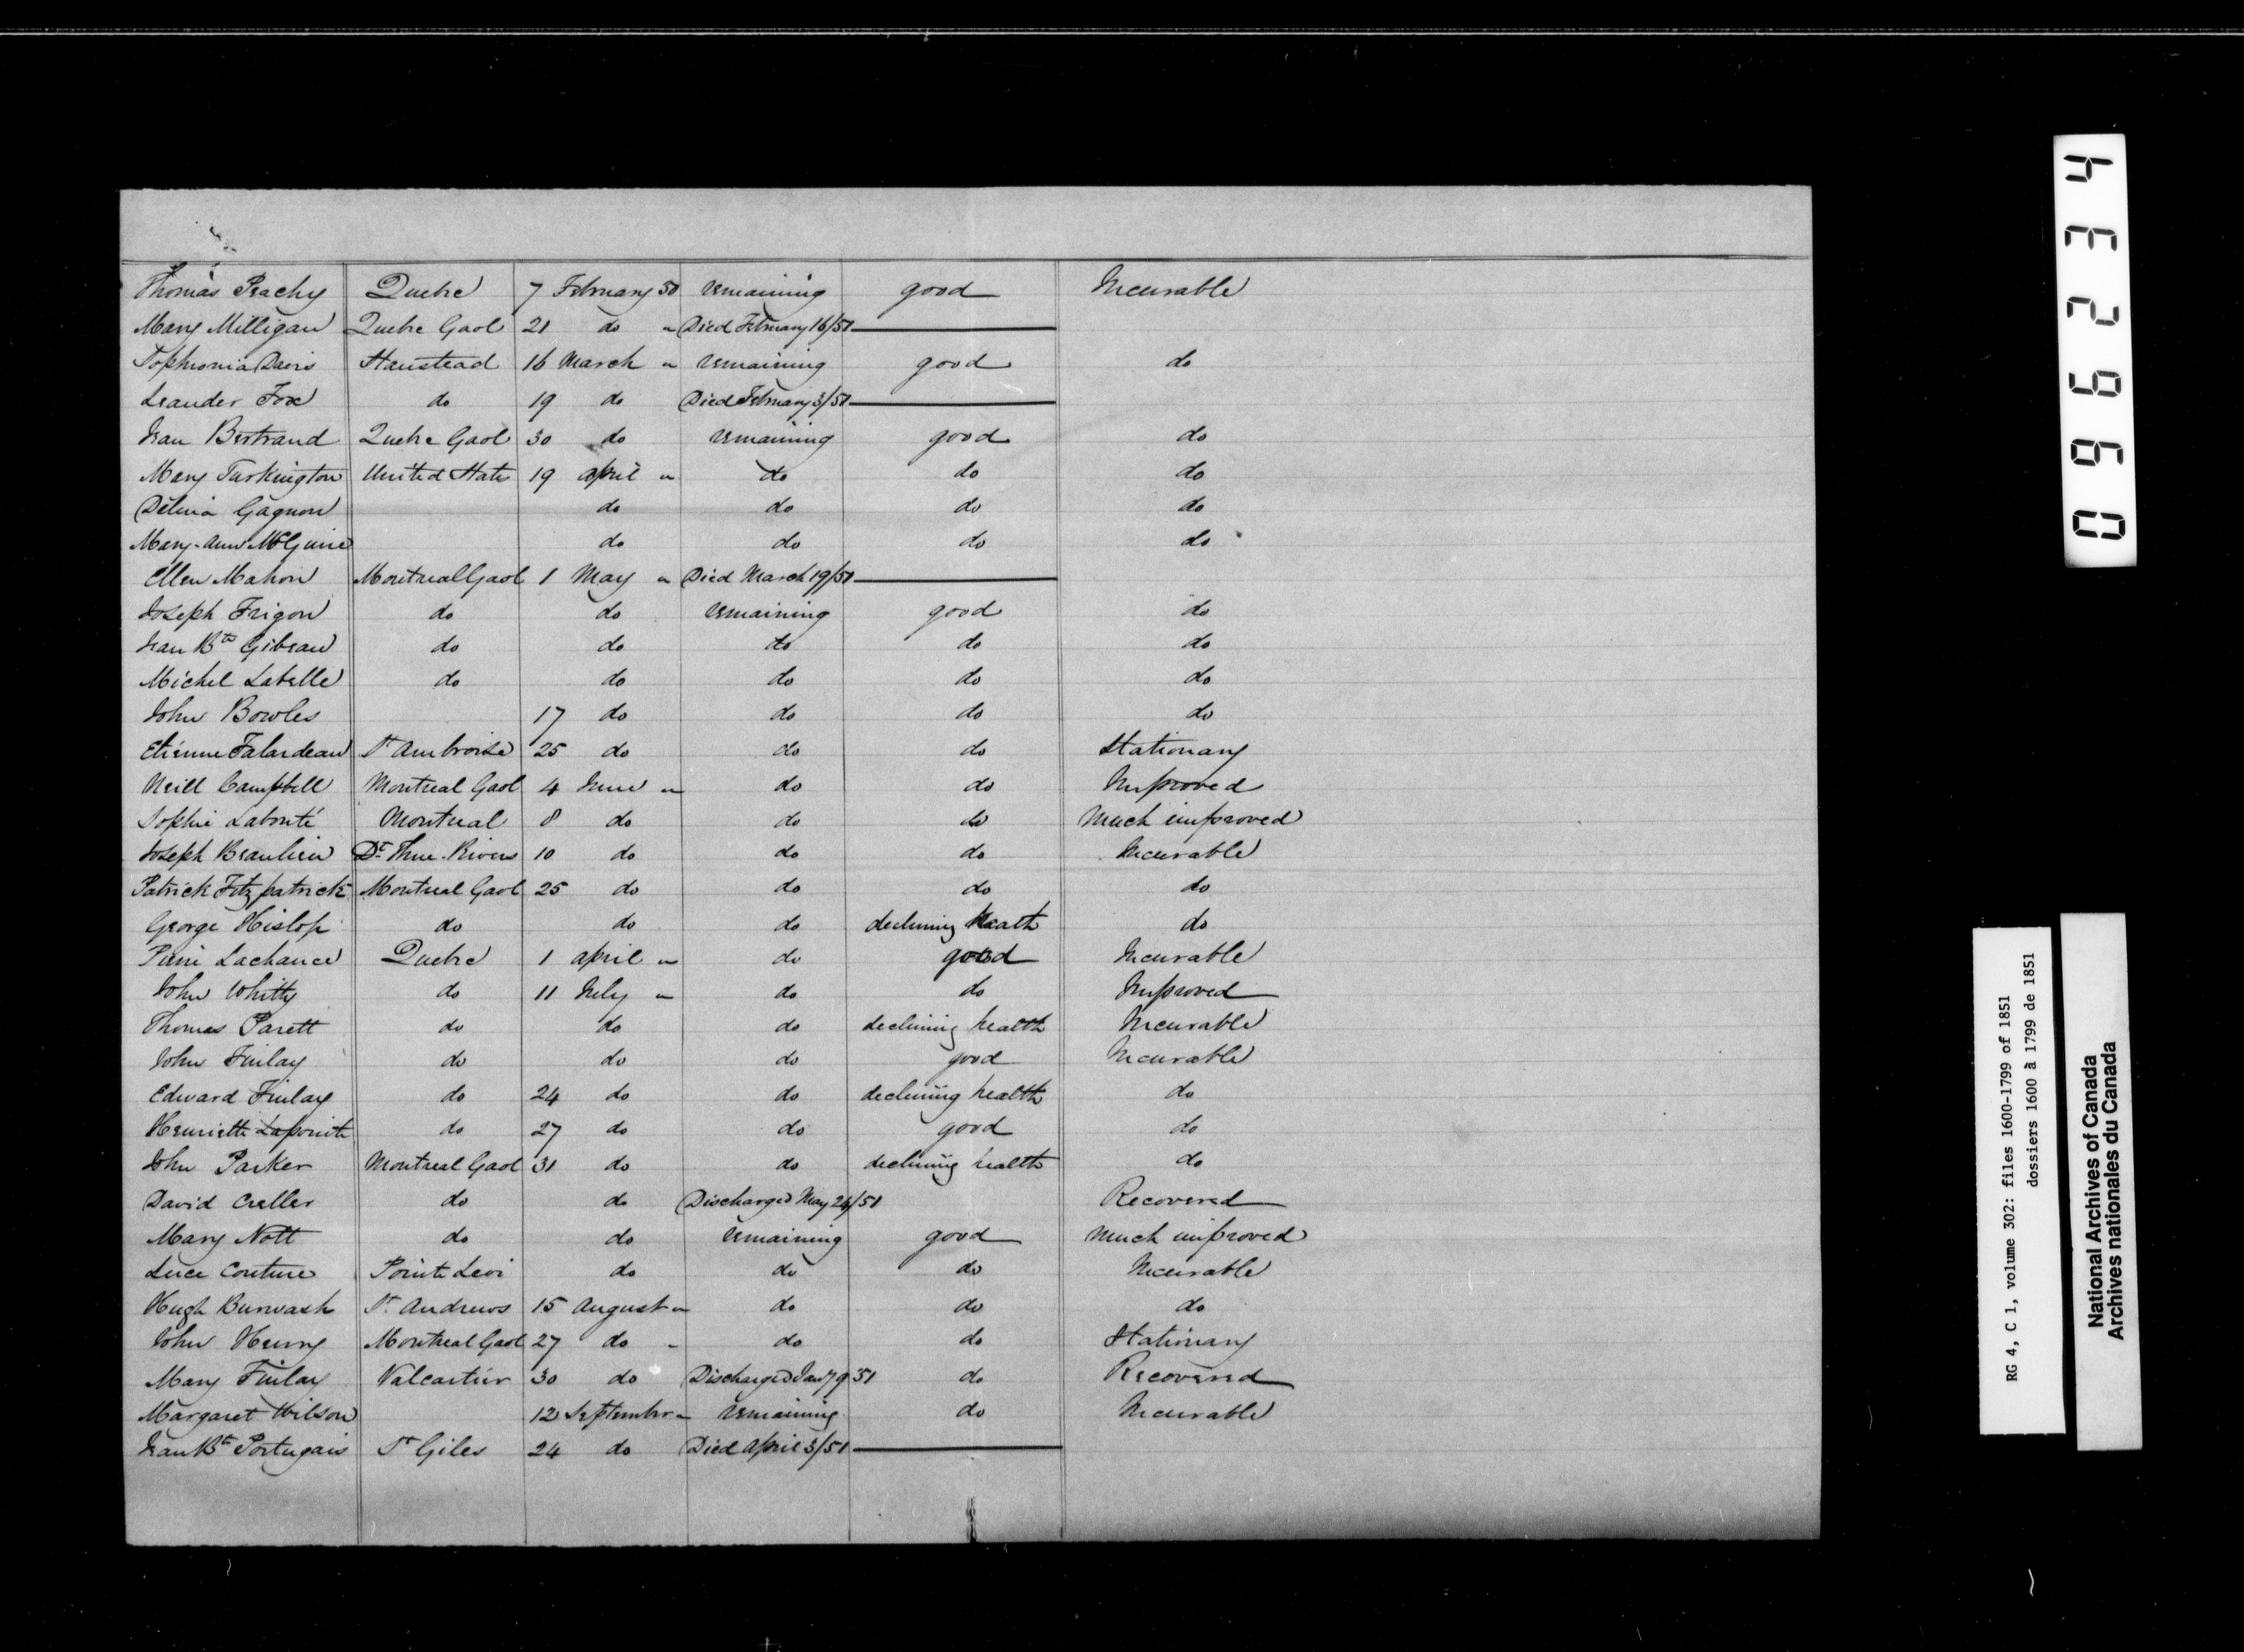 Thomas Peachy Quebec 7 February 50 remaining good Incurable
Mary Milligan Quebec Gaol 21 do " Died February 16/51
Sophronia Davis Stanstead 16 March " remaining good do
Leander Fox do 19 do Died February 3/51
Jean Bertrand Quebec Gaol 30 do remaining good do
Mary Turkington United State 19 April " do do do
Délima Gagnon do do do do
Mary-Ann McGuire do do do do
Ellen Mahon Montreal Gaol 1 May " Died March 19/51
Joseph Frigon do do remaining good do
Jean Bte Gibeau do do do do do
Michel Labelle do do do do do
John Bowles 17 do do do do
Etienne Falardeau St Ambroise 25 do do do Stationary
Neill Campbell Montreal Gaol 4 June " do do Improved
Sophie Labonté Montreal 8 do do do Much improved
Joseph Beaulieu Dt Three-Rivers 10 do do do Incurable
Patrick Fitzpatrick Montreal Gaol 25 do do do do
George Hislop do do do declining heath do
Pierre Lachance Quebec 1 April " do good Incurable
John Whitty do 11 July " do do Improved
Thomas Parett do do do declining health Incurable
John Finlay do do do good Incurable
Edward Finlay do 24 do do declining health do
Henriette Lapointe do 27 do do good do
John Parker Montreal Gaol 31 do do declining health do
David Creller do do Discharged May 24/51 Recovered
Mary Nott do do remaining good Much improved
Luce Couture Pointe Levi do do do Incurable
Hugh Burwash St Andrews 15 August " do do do
John Henry Montreal Gaol 27 do " do do Stationary
Mary Finlay Valcartier 30 do Discharged Jany 9 51 do Recovered
Margaret Wilson 12 September " remaining do Incurable
Jean Bte Portugais St Giles 24 do Died April 3/51
096234
RG 4, C 1, volume 302: files 1600-1799 of 1851
dossiers 1600 à 1799 de 1851
National Archives of Canada
Archives nationales du Canada